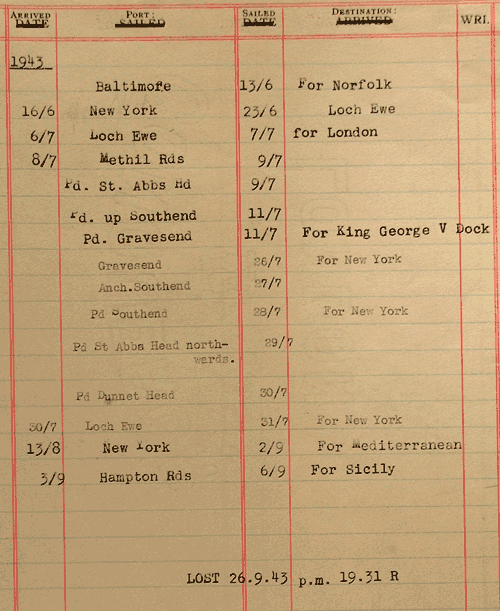 ARRIVED PORT: SAILED DESTINATION:
DATE SAILED DATE ARRIVED WRI.
1943
Baltimore 13/6 For Norfolk
16/6 New York 23/6 Loch Ewe
6/7 Loch Ewe 7/7 for London
8/7 Methil Rds 9/7
Pd. St. Abbs Hd 9/7
Pd. up Southend 11/7
Pd. Gravesend 11/7 For King George V Dock
Gravesend 26/7 For New York
Anch.Southend 27/7
Pd Southend 28/7 For New York
Pd St Abbs Head north- 29/7
wards.
Pd Dunnet Head 30/7
30/7 Loch Ewe 31/7 For New York
13/8 New York 2/9 For Mediterranean
3/9 Hampton Rds 6/9 For Sicily
LOST 26.9.43 p.m. 19.31 R